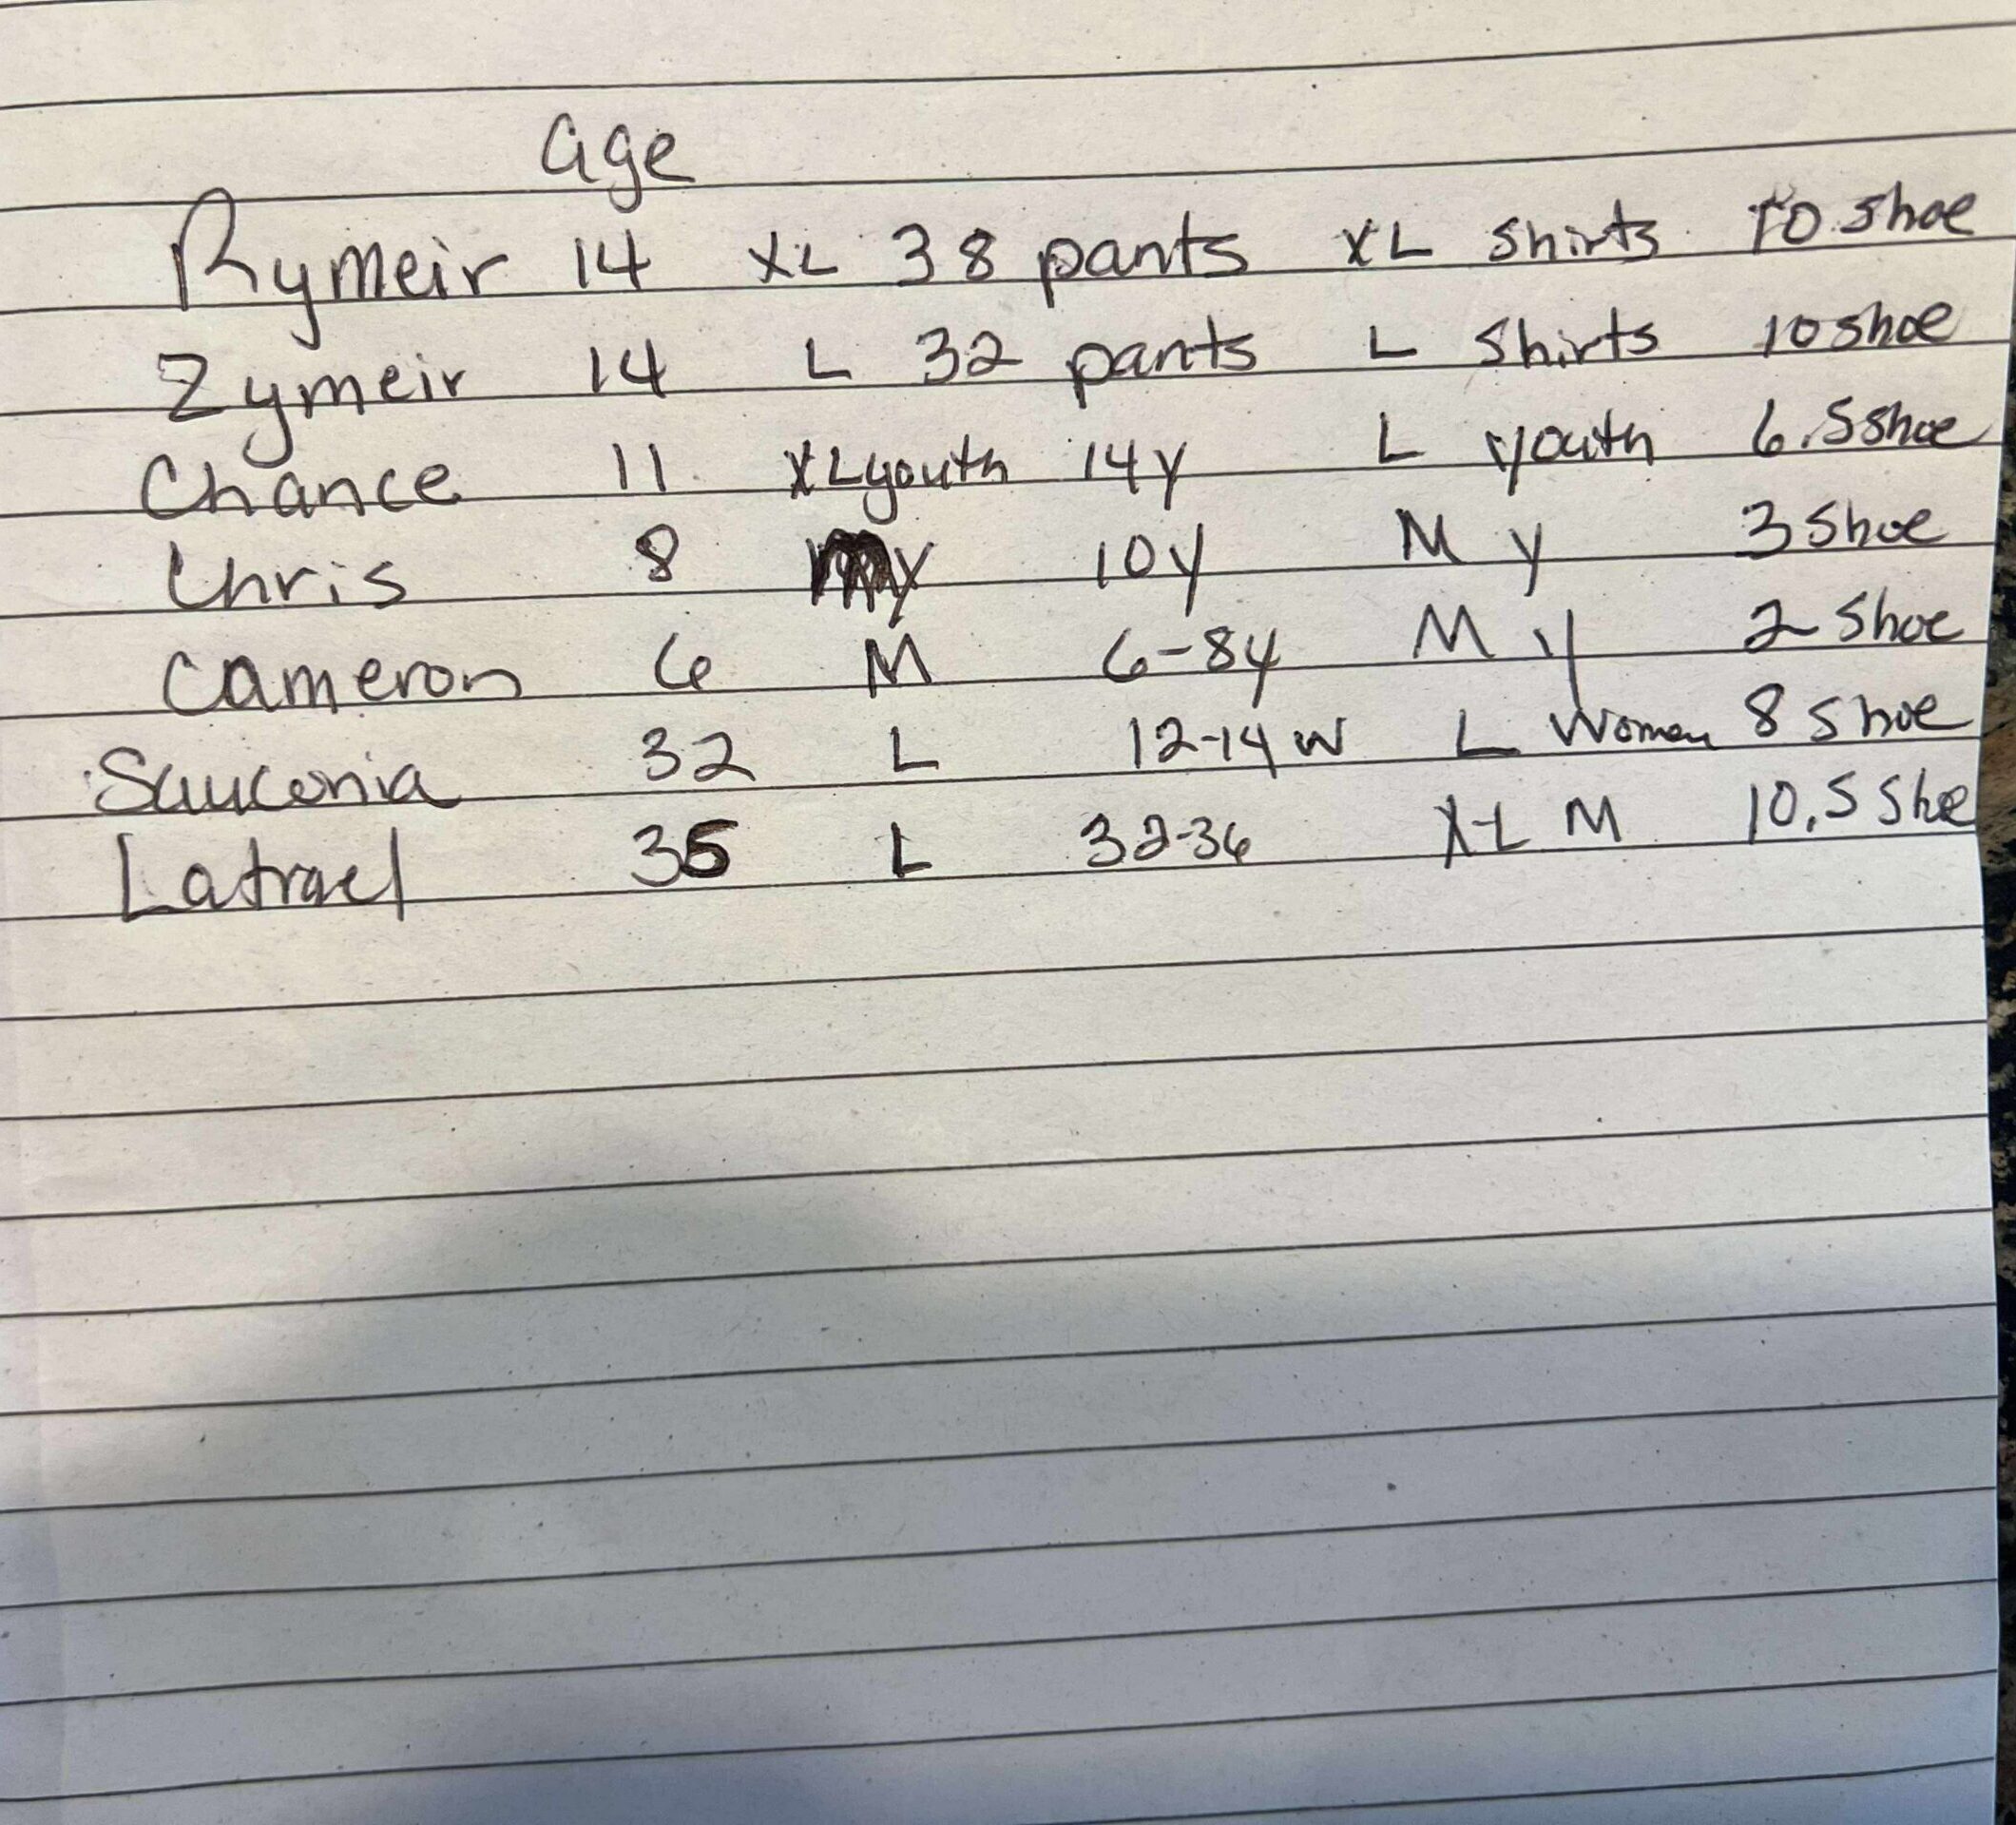 age
Rymeir 14 XL 38 pants XL shirts 10 shoe
Zymeir 14 L 32 pants L shirts 10 shoe
Chance 11 XL youth 14y L youth 6.5 shoe
Chris 8 my 10y M y 3 shoe
Cameron 6 M 6-8y M y 2 shoe
Sauconia 32 L 12-14 W L Women 8 shoe
Latrael 35 L 32-36 XL M 10.5 Shoe